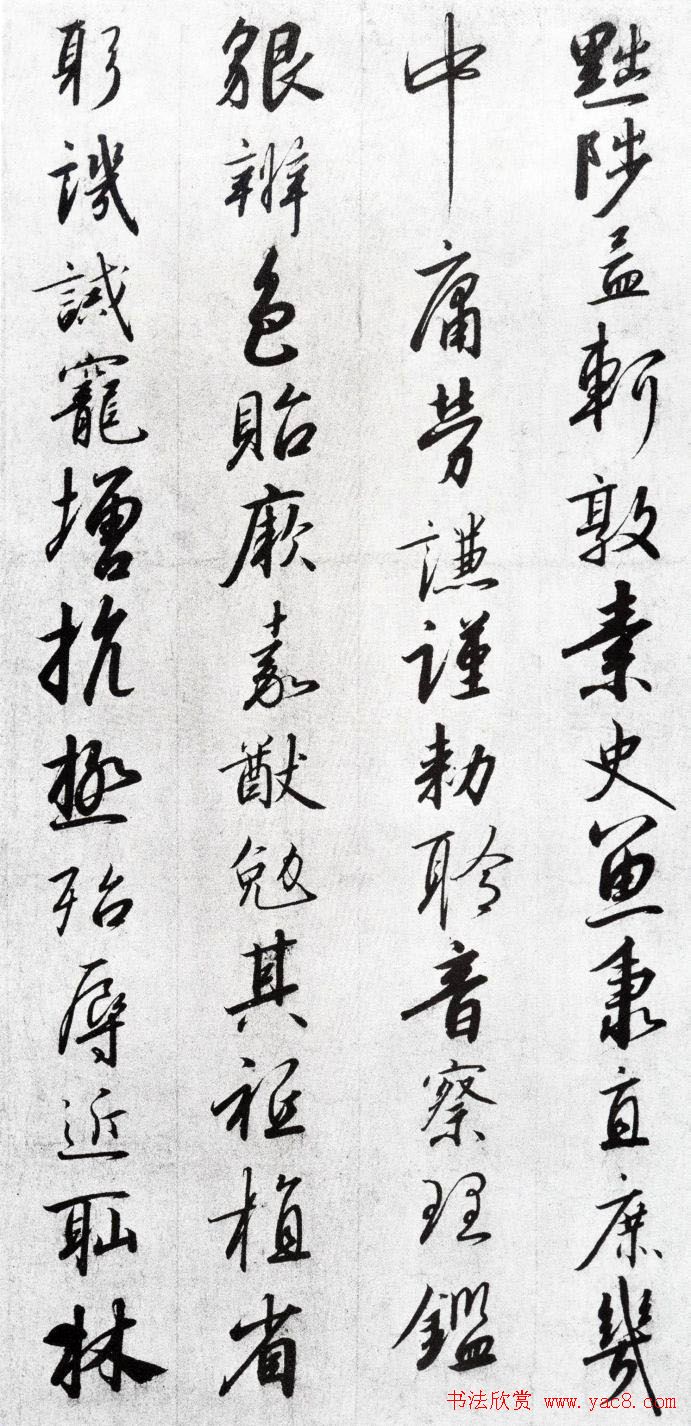 黜陟孟軻敦素史魚秉直庶幾
中庸勞謙謹勅聆音察理鑑
貌辨色貽厥嘉猷勉其祗植省
躬譏誡寵增抗極殆辱近耻林
书法欣赏 www.yac8.com